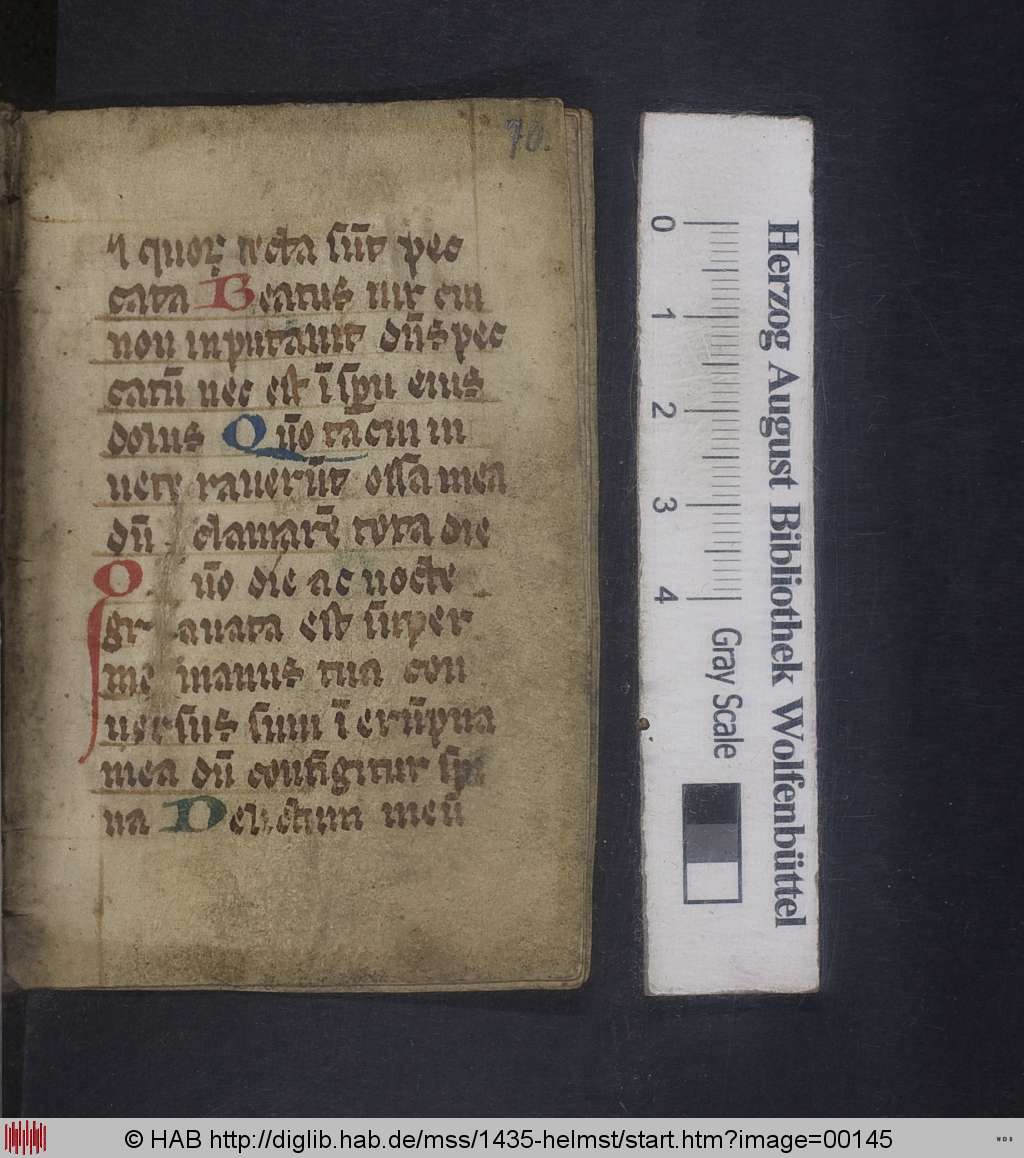 70.
⁊ quoꝝ tecta sūt pec
cata Beatus uir cui
non inputauit dn̄s pec
catū nec est ī spū eius
dolus Qūo tacui in
uete rauerūt ossa mea
dū clamarē tota die
Qūo die ac nocte
gr auata est sūper
me manus tua con
uersus sum ī erūpna
mea dū configitur spi
na Delictum meū
0 1 2 3 4
Gray Scale
Herzog August Bibliothek Wolfenbüttel
© HAB http://diglib.hab.de/mss/1435-helmst/start.htm?image=00145